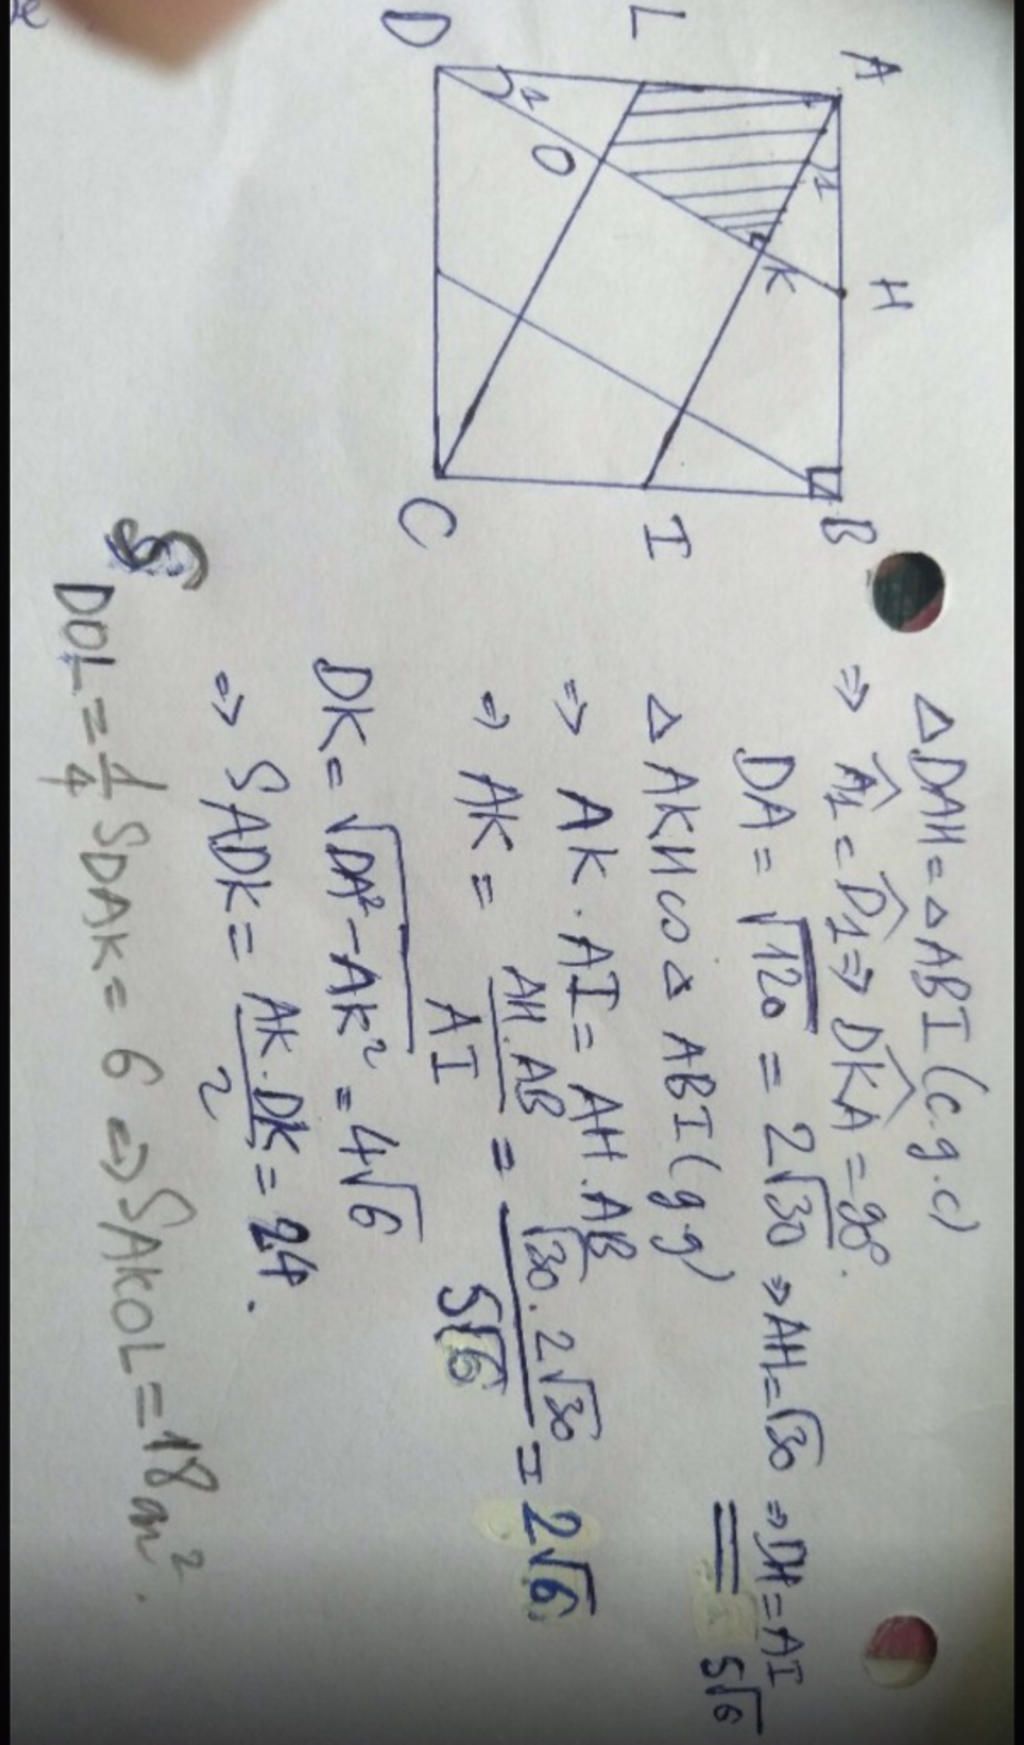 A
H
B
L
K
I
D
O
C
1
1
△DAH = △ABI (c.g.c)
⇒ Â1 = D̂1 ⇒ DKA = 90°.
DA = √120 = 2√30 ⇒ AH = √30 ⇒ DH = AI
5√6
△ AKH ∽ △ ABI (g g)
⇒ AK . AI = AH . AB
⇒ AK = AH . AB / AI = √30 . 2√30 / 5√6 = 2√6
DK = √DA² - AK² = 4√6
⇒ SADK = AK . DK / 2 = 24.
S DOL = 1/4 SDAK = 6 ⇒ SAKOL = 18 m².